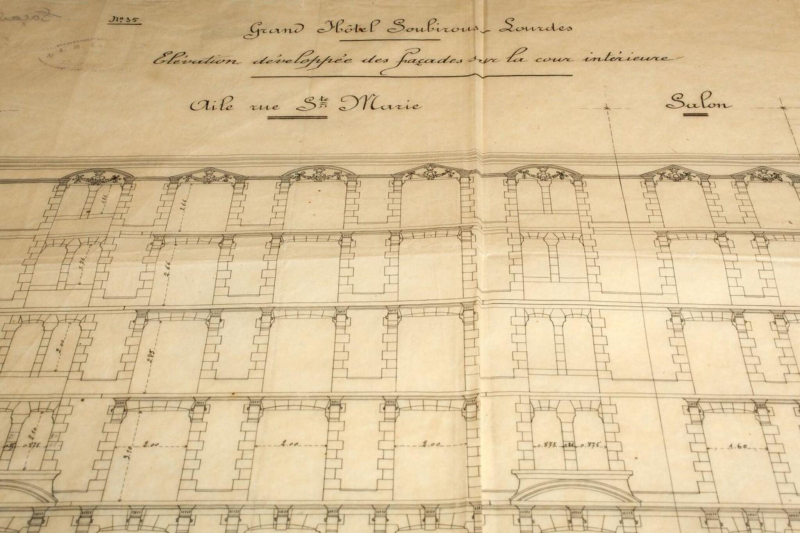 N° 35
Grand Hôtel Soubirous_ Lourdes
Elévation développée des façades sur la cour intérieure
Aile rue Ste Marie
Salon
2.00
2.00
2.00
1.60